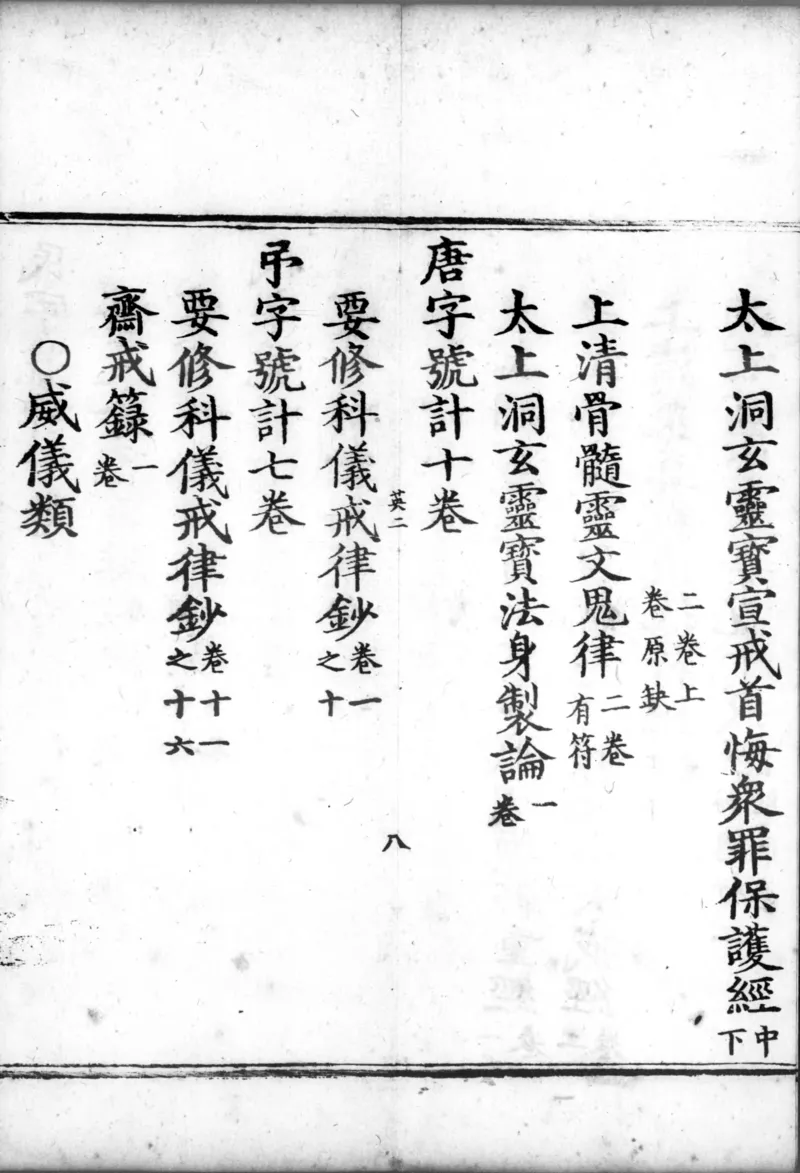 太上洞玄靈寶宣戒首悔衆罪保護經中下
二卷上卷原缺
上清骨髓靈文鬼律二卷有符
太上洞玄靈寶法身製論一卷
唐字號計十卷
英二
八
要修科儀戒律鈔卷一之十
弔字號計七卷
要修科儀戒律鈔卷十一之十六
齋戒籙一卷
○威儀類